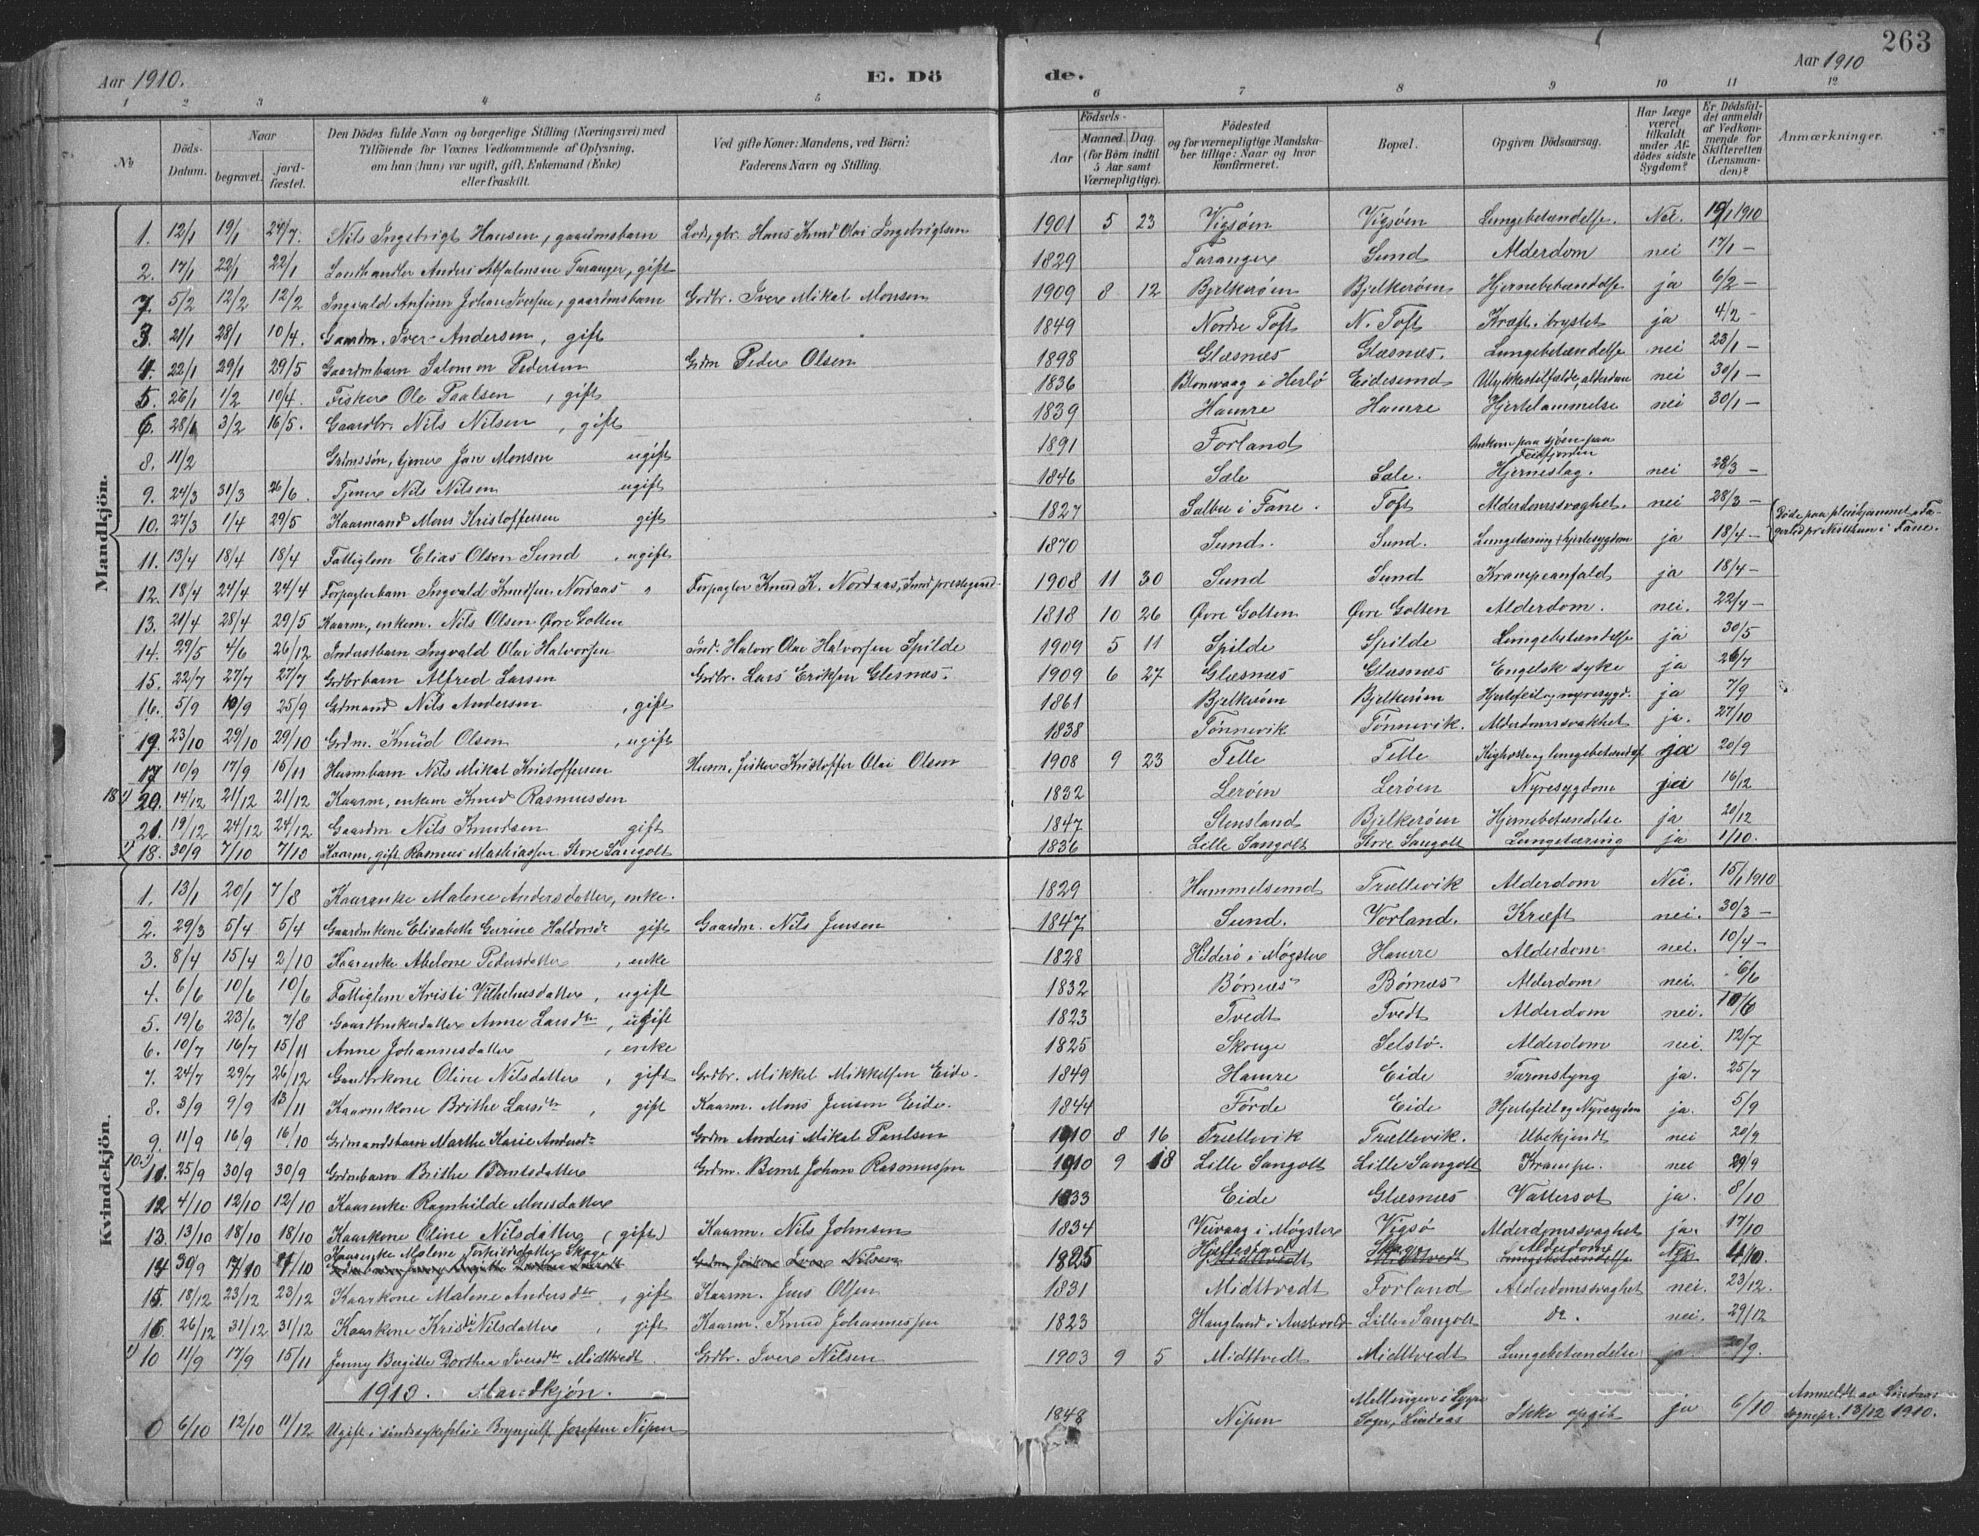 263
Aar 1910. E. Dö de. Aar 1910
1 2 3 4 5 6 7 8 9 10 11 12
No Döds-Datum. Naar begravet. jordfæstet. Den Dödes fulde Navn og borgerlige Stilling (Næringsvei) med Tilföiende for Voxnes Vedkommende af Oplysning, om han (hun) var ugift, gift, Enkemand (Enke) eller fraskilt. Ved gifte Koner: Mandens, ved Börn: Faderens Navn og Stilling. Födsels- Aar Maaned Dag. (for Börn indtil 5 Aar samt Værnepligtige). Födested og for værnepligtige Mandskaber tillige: Naar og hvor konfirmeret. Bopæl. Opgiven Dödsaarsag. Har Læge været tilkaldt under Afdödes sidste Sygdom? Er Dödsfaldet anmeldt af Vedkommende for Skifteretten (Lensmanden)? Anmærkninger.
Mandkjön.
1. 12/1 19/1 24/7 Nils Ingebrigt Hansen, gaardmsbarn Hans Knud Olai Ingebrigtsen 1901 5 23 Vigsøen Vigsøen Lungebetændelse. Nei. 19/1 1910
2. 17/1 22/1 22/1 Landhandler Anders Absalonsen Taranger, gift 1829 Taranger Sund Alderdom nei 17/1 —
7. 5/2 12/2 12/2 Ingvald Anfinn Johan Iversen, gaardmsbarn Grdbr. Iver Mikal Monsen 1909 8 12 Bjelkerøen Bjelkerøen Hjernebetændelse ja 6/2 —
3. 21/1 28/1 10/4. Gaardm. Iver Andersen, gift 1849 Nordre Toft N. Toft Kræft i brystet ja 4/2 —
4. 22/1 29/1 29/5 Gaardmbarn Salomon Pedersen Grdm Peder Olsen 1898 Glæsnæs Glæsnæs. Lungebetændelse nei 23/1 —
5. 26/1 1/2 10/4. Fisker Ole Paalsen, gift 1836 Blomvaag i Herlø Eidesund Ulykkestilfælde, alderdom nei 30/1 —
6. 28/1 3/2 16/5. Gaardbr. Nils Nilsen, gift 1839 Hamre Hamre Hjertelammelse nei 30/1 —
8. 11/2 Grdmssøn, tjener Jan Monsen ugift 1891 Forland Omkom paa sjøen paa Feiefjorden
9. 24/3 31/3 26/6. Tjener Nils Nilsen ugift 1846 Sæle Sæle. Hjerneslag. nei 28/3 —
10. 27/3 1/4 29/5 Kaarmand Mons Kristoffersen gift 1827 Salbu i Fane. Toft Alderdomssvaghet. nei 28/3 —
11. 13/4 18/4 18/4 Fattiglem Elias Olsen Sund, ugift 1870 Sund. Sund. Lungetæring i hjertesygdom ja 18/4 — Døde paa pleiehjemmet pr Nesttun i Fane.
12. 18/4 24/4 24/4 Forpagterbarn Ingvald Knudsen Nordaas " Forpagter Knud K. Nordaas, Sund prestegaard. 1908 11 30 Sund Sund Krampeanfald ja 18/4 —
13. 21/4 28/4 29/5 Kaarm, enkem. Nils Olsen Øvre Golten 1818 10 26 Øvre Golten Øvre Golten Alderdom. nei. 22/4 —
14. 29/5 4/6 26/12 Inderstbarn Ingvald Olai Halvorsen ind. Halvor Olai Halvorsen Spilde 1909 5 11 Spilde Spilde Lungebetændelse ja 30/5
15. 22/7 27/7 27/7 Grdbrbarn Alfred Larsen Grdbr. Lars Eriksen Glesnæs. 1909 6 27 Glæsnæs Glæsnæs Engelsk syke ja 26/7
16. 5/9 10/9 25/9 Grdmand Nils Andersen, gift 1861 Bjelkerøen Bjelkerøen Hjertefeil og nyresygd. ja 7/9
19. 23/10 29/10 29/10 Grdm. Knud Olsen, ugift 1838 Tønnevik Tønnevik. Alderdomssvakhet ja. 27/10
17 10/9 17/9 15/11 Husmbarn Nils Mikal Kristoffersen Husm, fisker Kristoffer Olai Olsen 1908 9 23 Telle Telle Kighoste og lungebetændelse ja 20/9
18 1) 20. 14/12 21/12 21/12 Kaarm, enkem Knud Rasmussen 1832 Lerøen Lerøen Nyresygdom ja 16/12
21. 19/12 24/12 24/12 Gaardm Nils Knudsen gift 1847 Stensland Bjelkerøen Hjernebetændelse ja 20/12
1) 18. 30/9 7/10 7/10 Kaarm, gift Rasmus Mathiassen Store Sangolt 1836 Lille Sangolt Store Sangolt Lungetæring ja 1/10.
Kvindekjön.
1. 13/1 20/1 7/8 Kaarenke Malene Andersdatter, enke. 1829 Hummelsund Trællevik Alderdom Nei. 15/1 1910
2. 29/3 5/4 5/4 Gaardmkone Elisabeth Gurine Haldorsdr gift Gaardm. Nils Jensen 1847 Sund. Vorland. Kræft nei. 30/3 —
3. 8/4 15/4 2/10 Kaarenke Abelone Pedersdatter, enke 1828 Hilderø i Møgster Hamre Alderdom nei. 10/4 —
4. 6/6 10/6 10/6 Fattiglem Kristi Vilhelmsdatter, ugift 1832 Børnæs Børnæs Alderdom nei. 6/6
5. 19/6 23/6 7/8 Gaardbrukerdatter Anne Larsdtr, ugift 1823 Tvedt Tvedt Alderdom nei. 19/6
6. 10/7 16/7 15/11 Anne Johannesdatter, enke 1825 Skouge Selstø. Alderdom nei. 12/7
7. 24/7 29/7 26/12 Gaardbrkone Oline Nilsdatter, gift Grdbr. Mikkel Mikkelsen Eide. 1849 Hamre Eide Tarmslyng ja. 25/7
8. 3/9 9/9 13/11 Kaarmkone Brithe Larsdtr, gift Kaarm. Mons Jenson Eide. 1844 Førde Eide Hjertefeil og Nyresygdom ja. 5/9
9. 11/9 16/9 16/10 Grdmandsbarn Marthe Karie Andersdr Grdm Anders Mikal Paulsen 1910 8 16 Trællevik Trællevik. Ubekjendt nei 20/9
10.1) 11. 25/9 30/9 30/9 Grdmbarn Brithe Berntsdatter Grdm. Bernt Johan Rasmussen 1910 9 18 Lille Sangolt Lille Sangolt Krampe. nei 29/9
12 4/10 12/10 12/10 Kaarenke Ragnhilde Monsdatter 1833 Eide Glæsnæs Vattersot ja. 8/10
13. 13/10 18/10 18/10 Kaarkone Oline Nilsdatter (gift) Kaarm. Nils Johnsen 1834 Veivaag i Møgster Vigsø Alderdomssvaghet ja. 17/10
14 30/9 Kaarenke Malene Torkildsdatter Skoge 1825 Hjellestad Skoge Alderdom Nei 4/10.
15. 18/12 23/12 23/12 Kaarkone Malene Andersdtr, gift Kaarm. Jens Olsen 1831 Midttvedt Forland Alderdomssvaghet nei. 23/12.
16. 26/12 31/12 31/12 Kaarkone Kristi Nilsdatter, gift Kaarm. Knud Johannessen 1823 Haugland i Austevold Lille Sangolt Do. nei. 29/12
1) 10 11/9 17/9 15/11 Jenny Bergitte Dorthea Iversdr Midttvedt. Grdbr. Iver Nilsen 1903 9 5 Midttvedt Midttvedt Lungebetændelse ja. 20/9.
1910. Mandkjøn.
0 6/10 12/10 11/12 Ugift i sindssykepleie Brynjulf Josefsen Nipen 1848 Nipen Mellingen i Sogn, Lindaas Ikke opgit ja 6/10 Anmeldt av Lindaas sognepr. 13/12 1910.